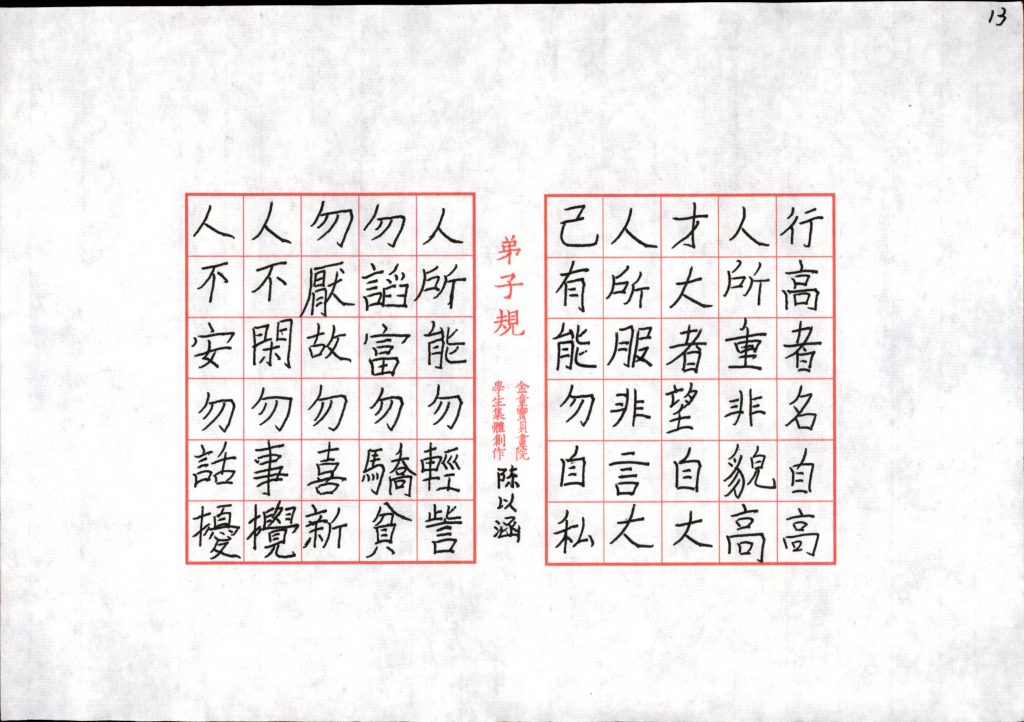 13
行高者名自高
人所重非貌高
才大者望自大
人所服非言大
己有能勿自私
弟子規
金童寶貝畫院
學生集體創作
陳以涵
人所能勿輕訾
勿謟富勿驕貧
勿厭故勿喜新
人不閑勿事攪
人不安勿話擾